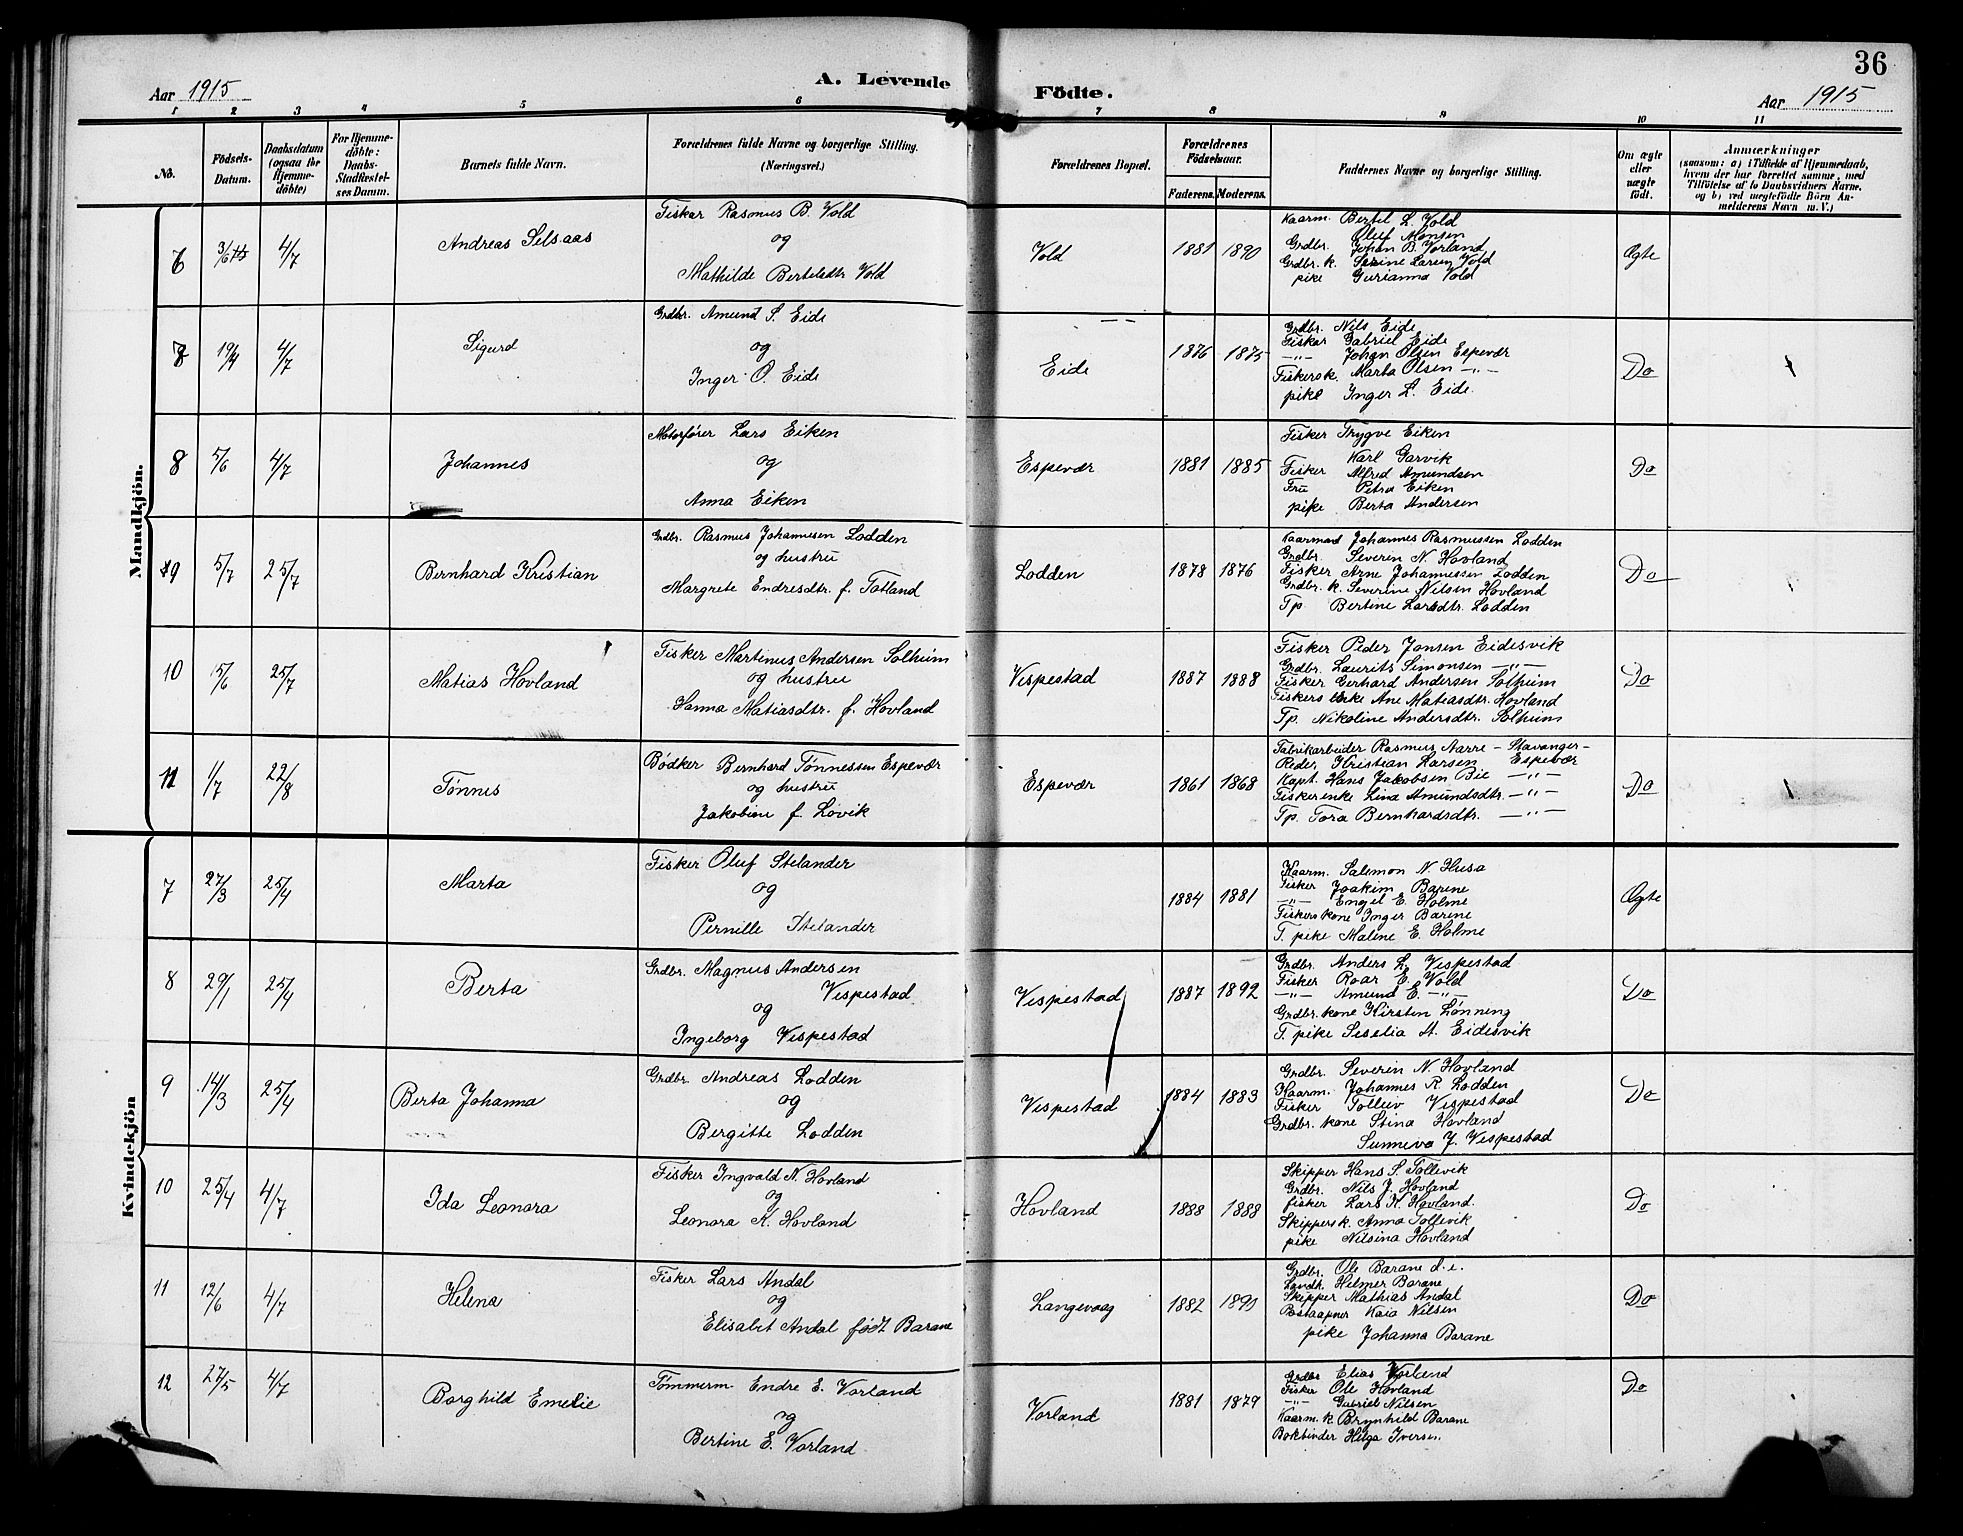 36
A. Levende Födte.
Aar 1915
Aar 1915
1 2 3 4 5 6 7 8 9 10 11
No.
Födsels-Datum.
Daabsdatum (ogsaa for Hjemme-döbte)
For Hjemme-döbte: Daabs-Stadfæstel-ses Datum.
Barnets fulde Navn.
Forældrenes fulde Navne og borgerlige Stilling. (Næringsvei.)
Forældrenes Bopæl.
Forældrenes Födselsaar.
Faderens. Moderens.
Faddernes Navne og borgerlige Stilling.
Om ægte eller uægte født.
Anmærkninger
(saasom: a) i Tilfælde af Hjemmedaab, hvem der har forrettet samme, med Tilföielse af to Daabsvidners Navne, og b) ved uægtefödte Börn An-melderens Navn m. V.)
Mandkjön.
6 3/6 4/7 Andreas Selsaas
Fisker Rasmus B. Vold
og
Mathilde Berteldtr Vold
Vold 1881 1890
Kaarm. Bertel L. Vold
Oluf Monsen
Grdbr. Johan B. Vorland
Grdbr. k. Serine Larsen Vold
pike Gurianna Vold
Ægte
8 19/4 4/7 Sigurd
Grdbr. Amund S. Eide
og
Inger O. Eide
Eide 1876 1875
Grdbr. Nils Eide
Fisker Gabriel Eide
—"— Johan Olsen Espevær
Fiskersk. Marta Olsen —"—
pike Inger L. Eide.
Do
8 5/6 4/7 Johannes
Motorfører Lars Eiken
og
Anna Eiken
Espevær 1881 1885
Fisker Trygve Eiken
Karl Garvik
Fisker Alfred Amundsen
Fru Petra Eiken
pike Berta Andersen
Do
9 5/7 25/7 Bernhard Kristian
Grdbr. Rasmus Johannesen Lodden
og hustru
Margrete Endresdtr. f. Totland
Lodden 1878 1876
Kaarmand Johannes Rasmussen Lodden
Grdbr. Severin N. Hovland
Fisker Arne Johannessen Lodden
Grdbr. k. Severine Nilsen Hovland
Tp. Bertine Larsdtr. Lodden
Do
10 15/6 25/7 Matias Hovland
Fisker Martinus Andersen Solheim
og hustru
Hanna Matiasdtr. f. Hovland
Vespestad 1887 1888
Fisker Peder Jonsen Eidesvik
Grdbr. Laurits Simonsen —"—
Fisker Gerhard Andersen Solheim
Fiskers enke Ane Matiasdtr. Hovland
Tp. Nikoline Andersdtr. Solheim
Do
11 1/7 22/8 Tønnes
Bødker Bernhard Tønnessen Espevær
og hustru
Jakobine f. Løvik
Espevær 1861 1868
Fabrikarbeider Rasmus Aarre – Stavanger –
Reder Kristian Larsen Espevær
Kapt. Hans Jakobsen Bie —"—
Fiskerenke Lina Amundsdtr. —"—
Tp. Tora Bernhardsdtr. —"—
Do
Kvindekjön
7 27/3 25/4 Marta
Fisker Oluf Stelander
og
Pernille Stelander
1884 1881
Kaarm. Salemon N. Husa
Fisker Joakim Barene
—"— Engel E. Holme
Fiskers kone Inger Barene
T. pike Maline E. Holme
Ægte
8 29/1 25/4 Berta
Grdbr. Magnus Andersen
Vespestad
og
Ingeborg Vespestad
Vespestad 1887 1892
Grdbr. Anders L. Vespestad
Fisker Roar E. Vold
—"— Amund E. —"—
Grdbr. kone Kirsten Lønning
T. pike Seselia A. Eidesvik
Do
9 14/3 25/4 Berta Johanna
Grdbr. Andreas Lodden
og
Bergitte Lodden
Vespestad 1884 1883
Grdbr. Severin N. Hovland
Kaarm. Johannes R. Lodden
Fisker Tolleiv Vespestad
Grdbr. kone Stina Hovland
Sunneva J. Vespestad
Do
10 25/4 4/7 Ida Leonora
Fisker Ingvald N. Hovland
og
Leonora K. Hovland
Hovland 1888 1888
Skipper Hans S. Tollevik
Grdbr. Nils J. Hovland
fisker Lars K. Hovland.
Skippersk. Anna Tollevik
pike Nilsina Hovland
Do
11 12/6 4/7 Helena
Fisker Lars Andal
og
Elisabet Andal født Barane
Langevaag 1882 1890
Grdbr. Ole Barane d.e.
Landh. Helmer Barane
Skipper Mathias Andal
Postaapner Kaia Nilsen
pike Johanna Barane
Do
12 27/5 4/7 Borghild Emelie
Tømmerm Endre E. Vorland
og
Bertine E. Vorland
Vorland 1881 1879
Grdbr Elias Vorland
Fisker Ole Hovland
—"— Gabriel Nilsen
Kaarm. k. Brynhild Barane
Bokbinder Helga Iversen
Do